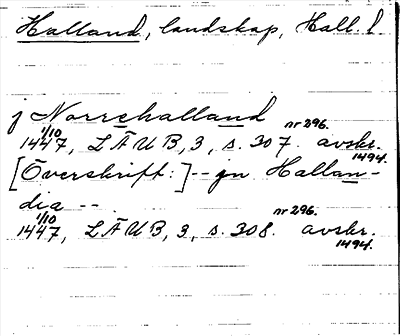 Halland, landskap, Hall. l.
j Norrehalland
1447 1/10, LÄUB, 3, s. 307. nr 296. avskr. 1494.
[Överskrift:] -- jn Hallan-
dia --
1447 1/10, LÄUB, 3, s. 308. nr 296. avskr. 1494.